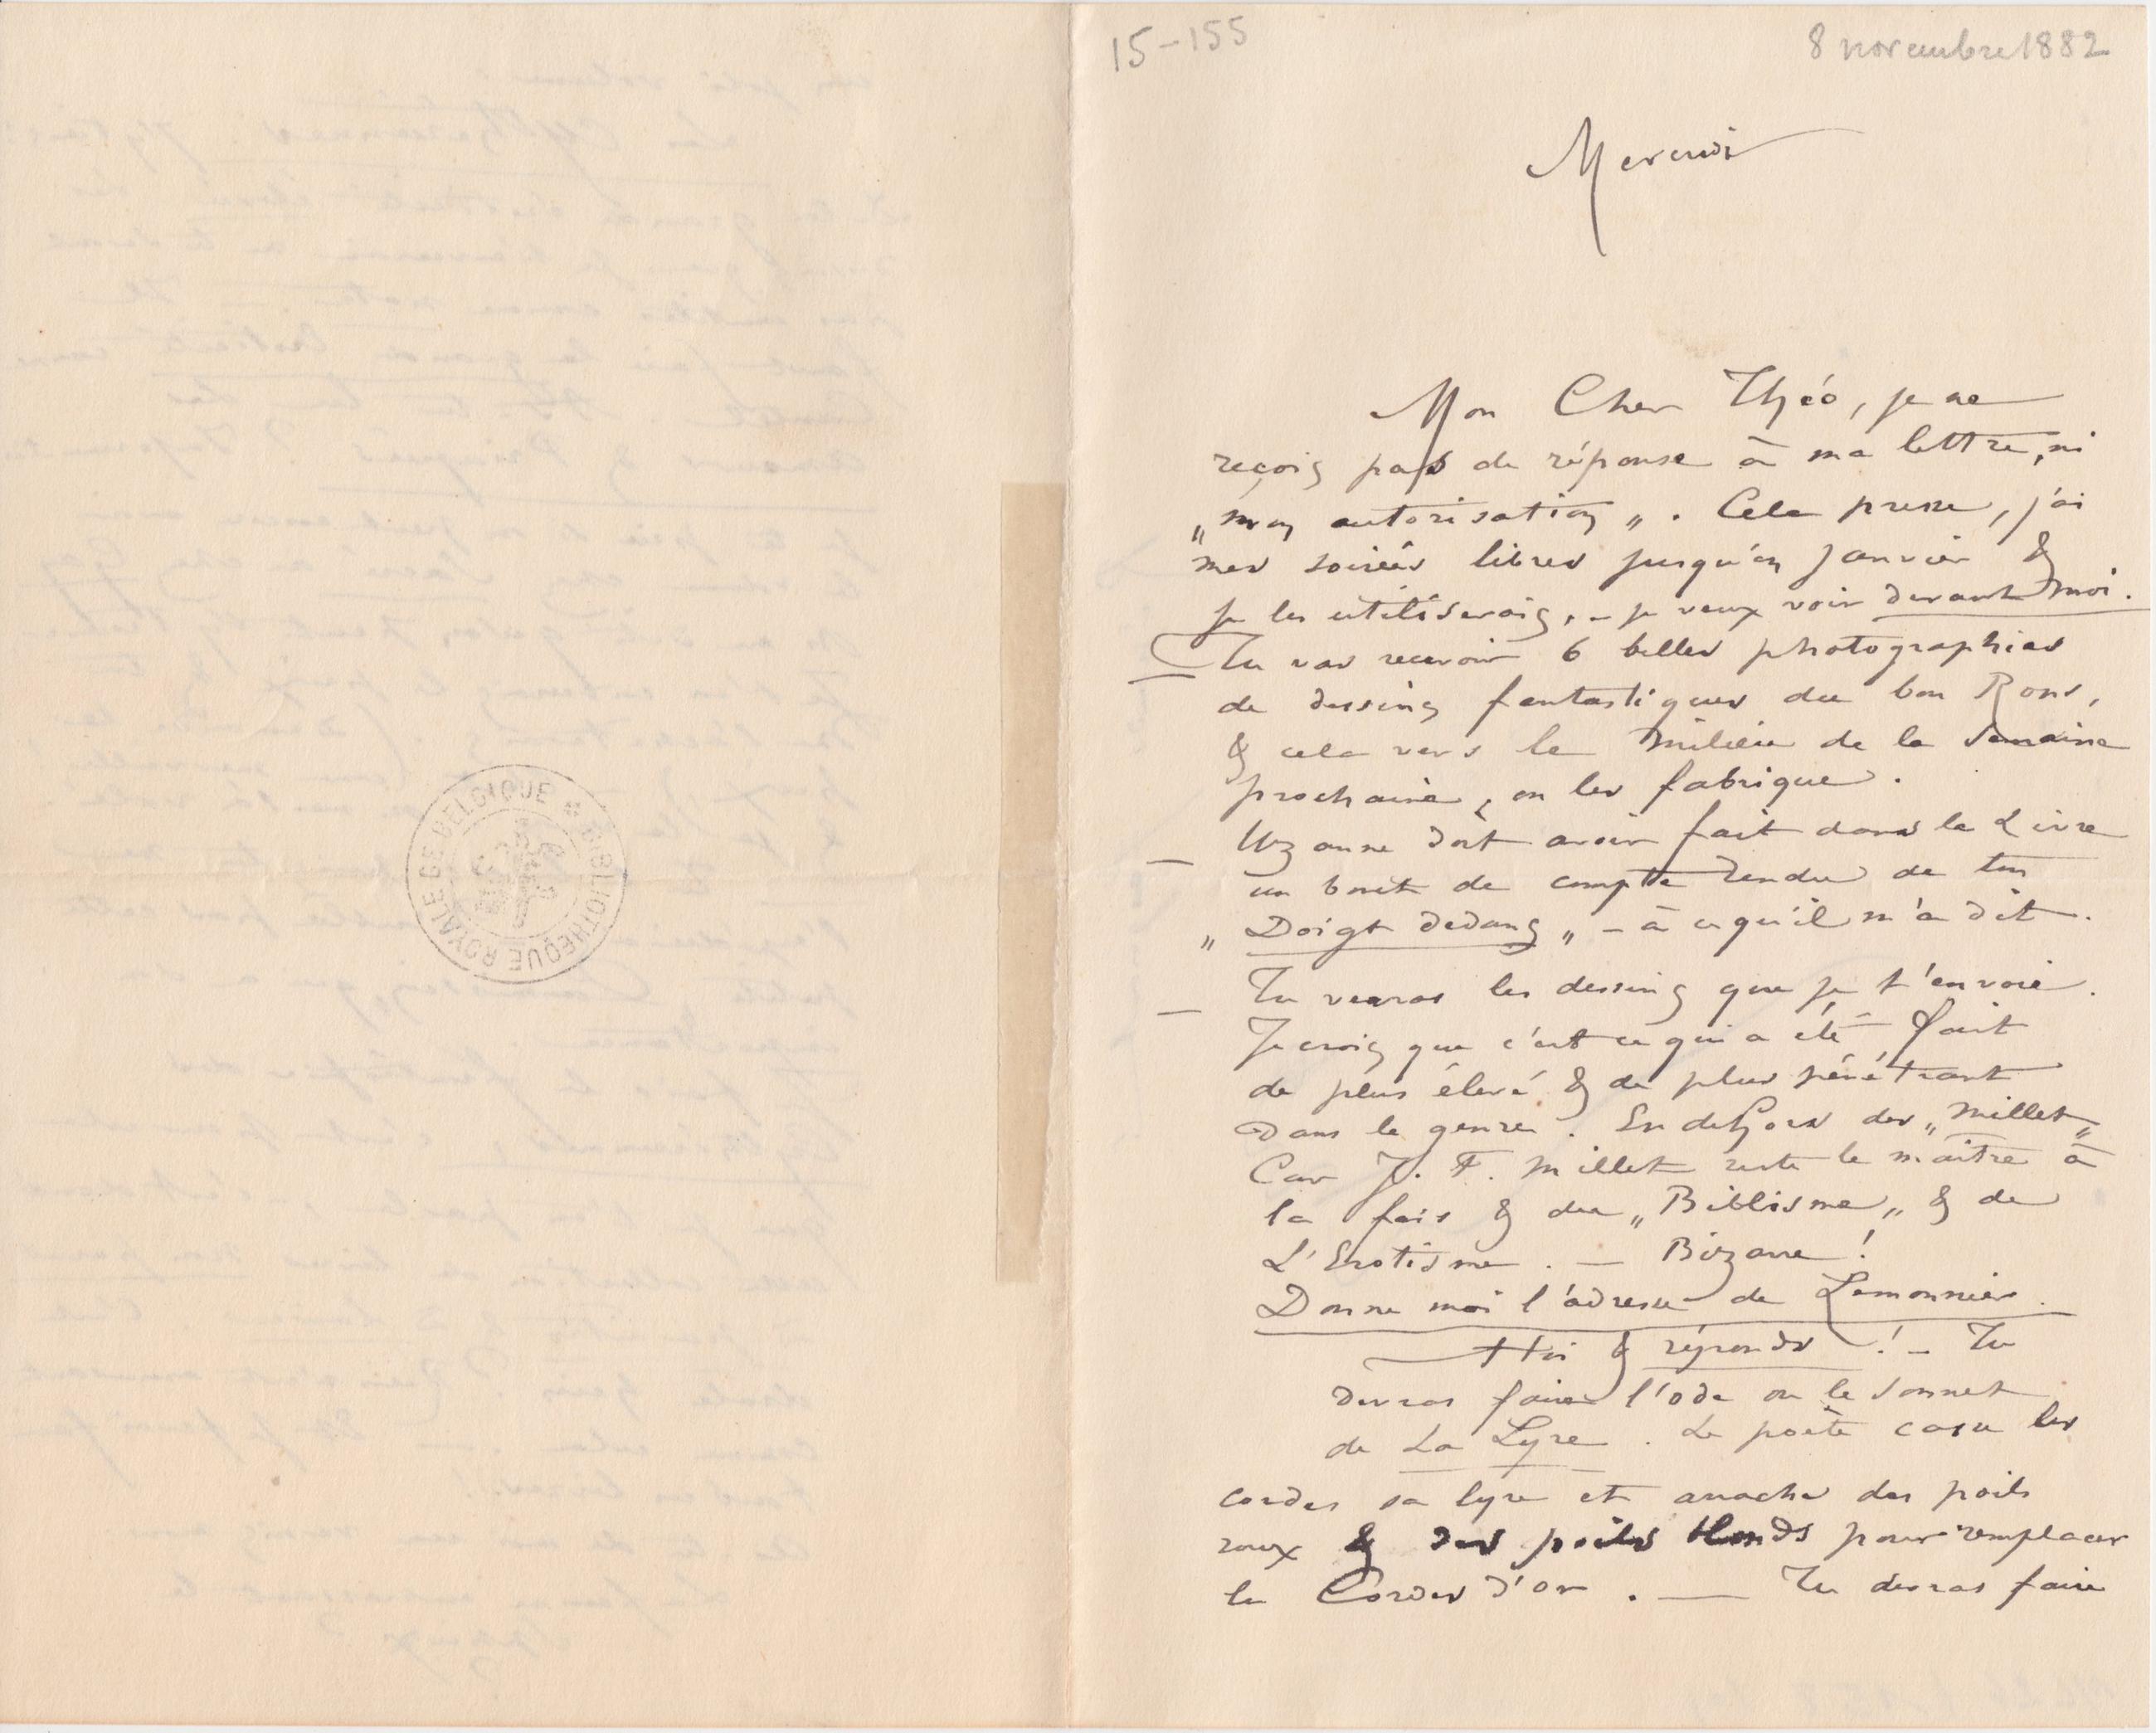 15-155
8 novembre 1882
Mercredi
Mon Cher Théo, je ne
reçois pas de réponse à ma lettre, ni
„mon autorisation„. Cela presse, j'ai
mes soirées libres jusqu'en Janvier &
je les utiliserais, – je veux voir devant moi.
Tu vas recevoir 6 belles photographies
de dessins fantastiques du bon Rops,
& cela vers le milieu de la semaine
prochaine, on les fabrique.
— Uzanne doit avoir fait dans le Livre
un bout de compte rendu de ton
„Doigt dedans„ – à ce qu'il m'a dit.
— Tu verras les dessins que je t'envoie.
Je crois que c'est ce qui a été fait
de plus élevé & de plus pénétrant
Dans le genre. En dehors des „Millet„
Car J. F. Millet reste le maître à
la fois & du „Biblisme„ & de
L'Erotisme. — Bizarre!
Donne moi l'adresse de Lemonnier.
& réponds! – Tu
devras faire l'ode ou le sonnet
de La Lyre. Le poète casse les
cordes sa lyre et arrache des poils
roux & des poils blonds pour remplacer
les Cordes d'or. — Tu devras faire
BIBLIOTHEQUE ROYALE DE BELGIQUE